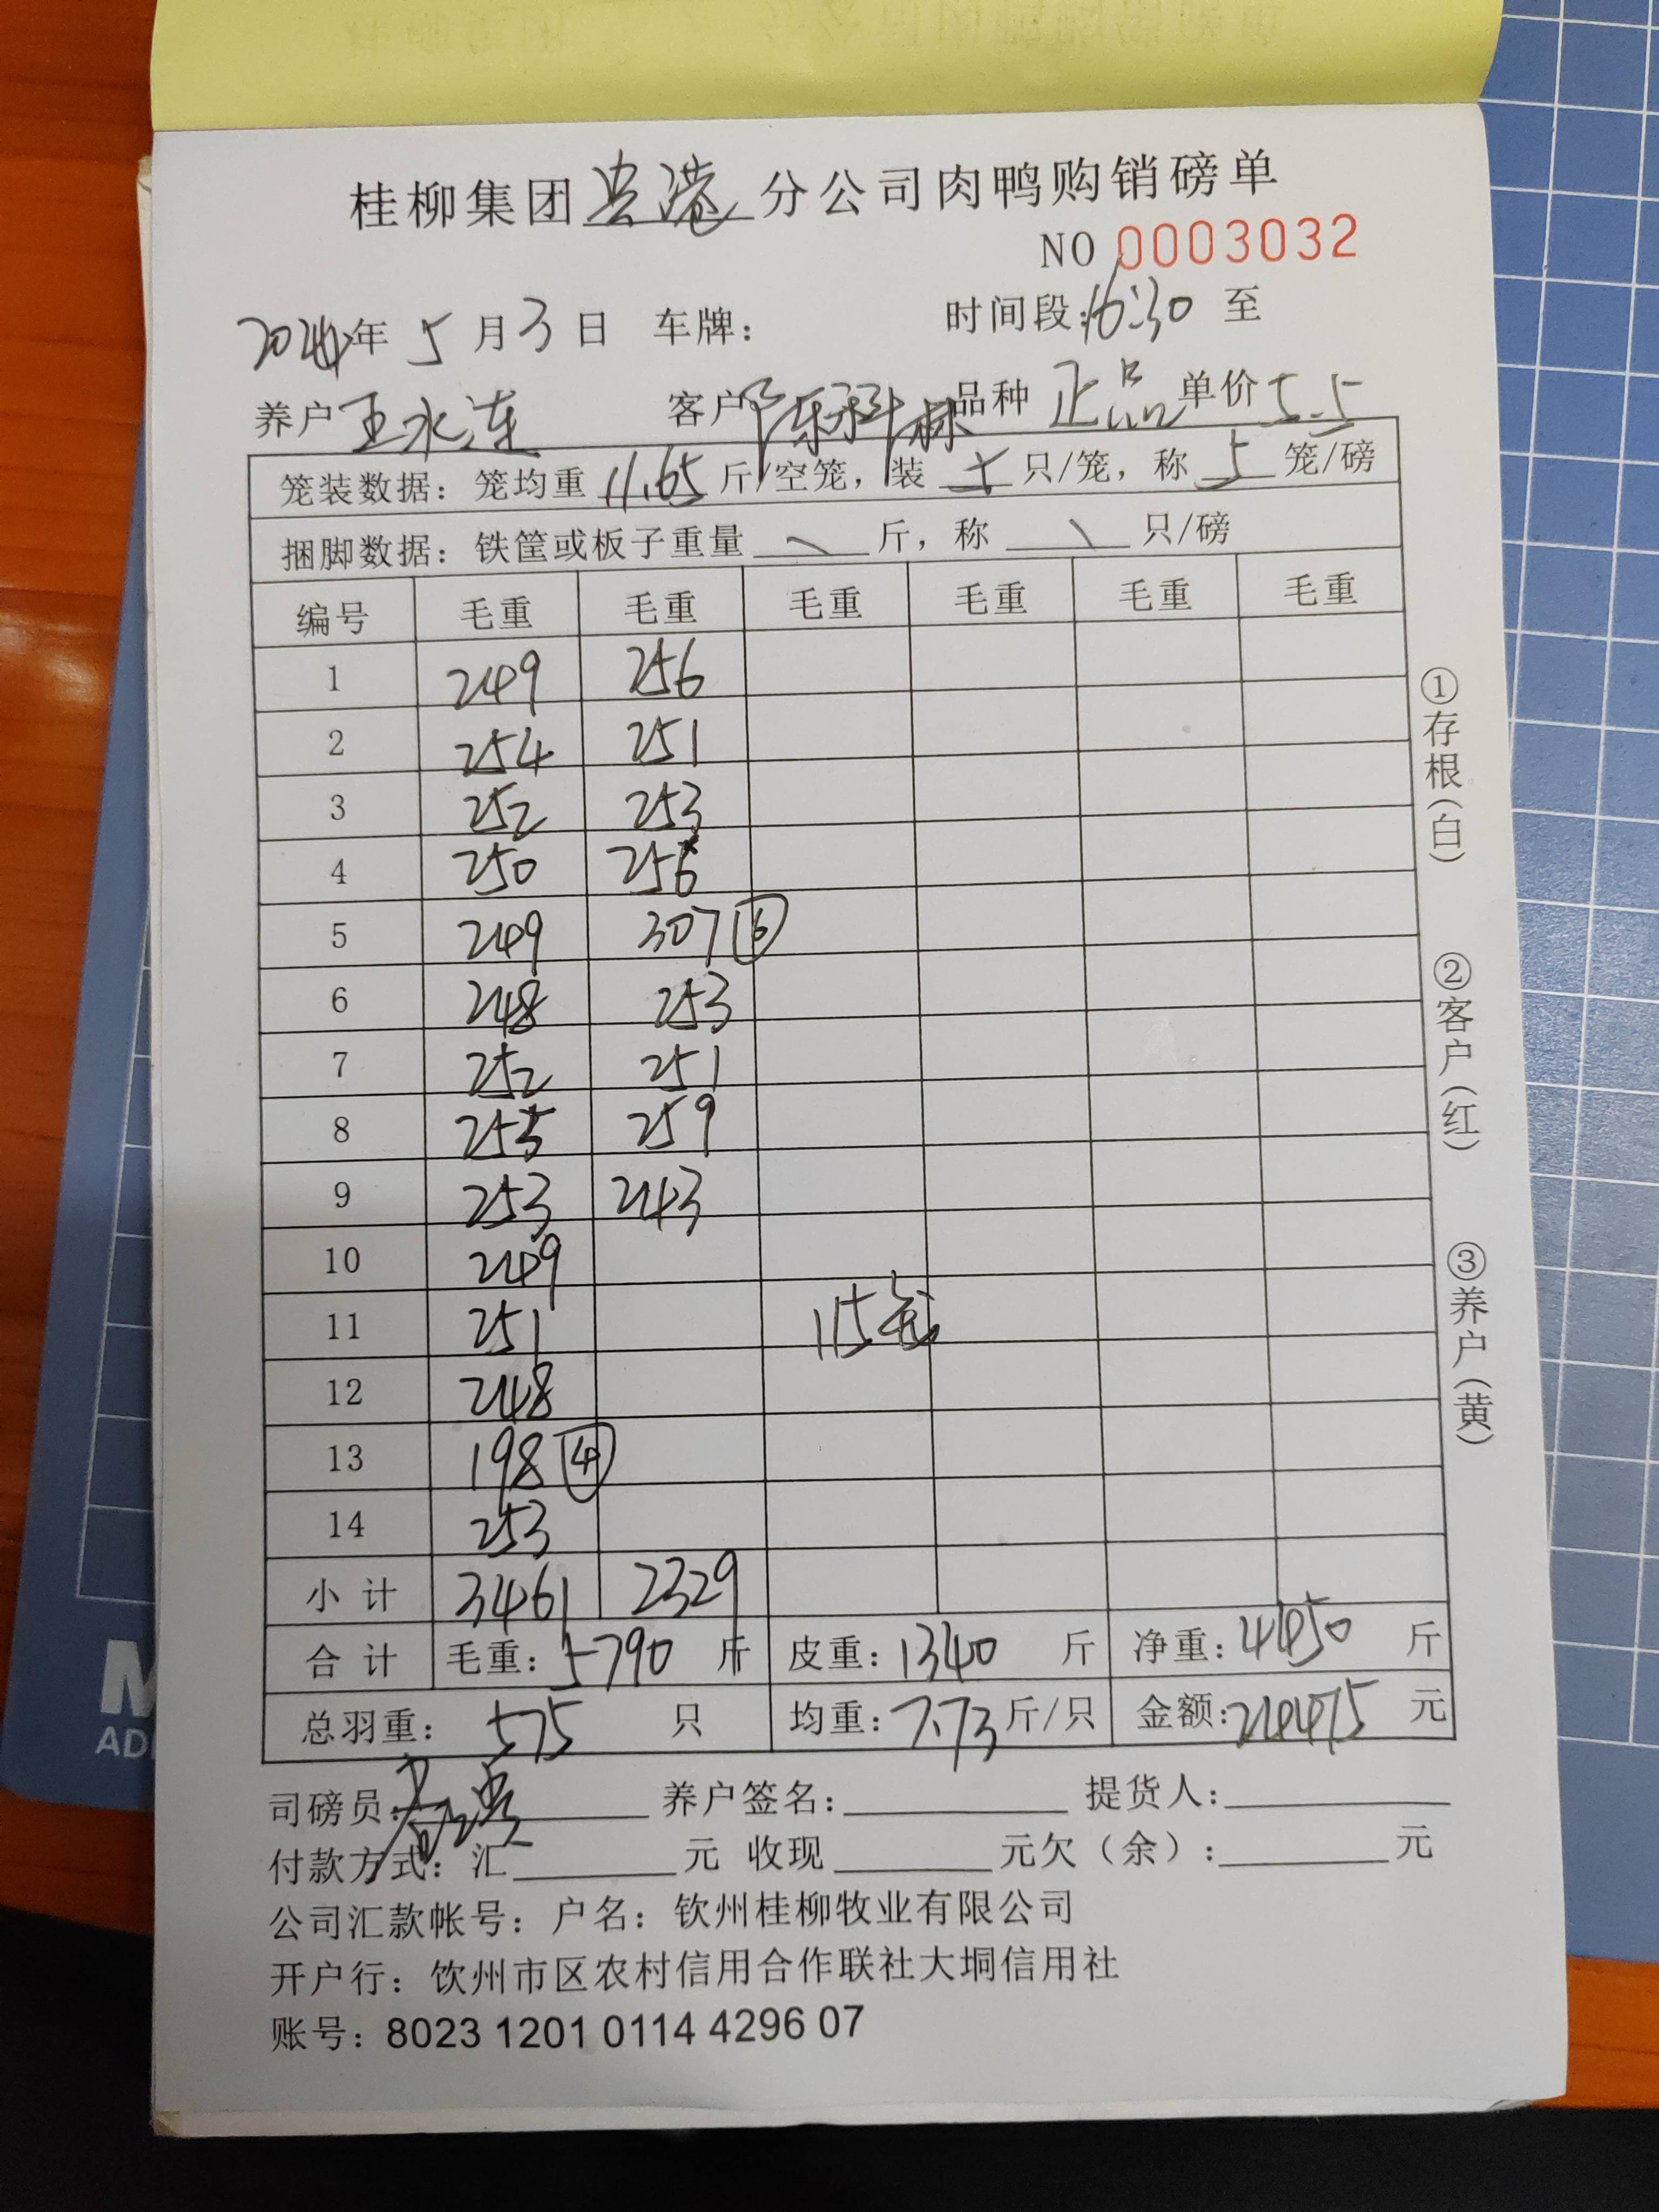 桂柳集团贵港分公司肉鸭购销磅单
NO 0003032
2024年 5月3日 车牌： 时间段：16:30 至
养户 王永连 客户 陈科林 品种 正品 单价 5.5
笼装数据：笼均重 11.65 斤/空笼，装 5 只/笼，称 5 笼/磅
捆脚数据：铁筐或板子重量 \ 斤，称 \ 只/磅
编号 毛重 毛重 毛重 毛重 毛重 毛重
1 249 256
2 254 251
3 252 253
4 250 256
5 249 307 ⑥
6 248 253
7 252 251
8 255 259
9 253 243
10 249
11 251 115笼
12 248
13 198 ④
14 253
小计 3461 2329
合计 毛重：5790 斤 皮重：1340 斤 净重：4450 斤
总羽重：575 只 均重：7.73斤/只 金额：24475 元
司磅员： 养户签名： 提货人：
付款方式：汇 元 收现 元欠（余）： 元
公司汇款帐号：户名：钦州桂柳牧业有限公司
开户行：饮州市区农村信用合作联社大垌信用社
账号：8023 1201 0114 4296 07
①存根（白）
②客户（红）
③养户（黄）